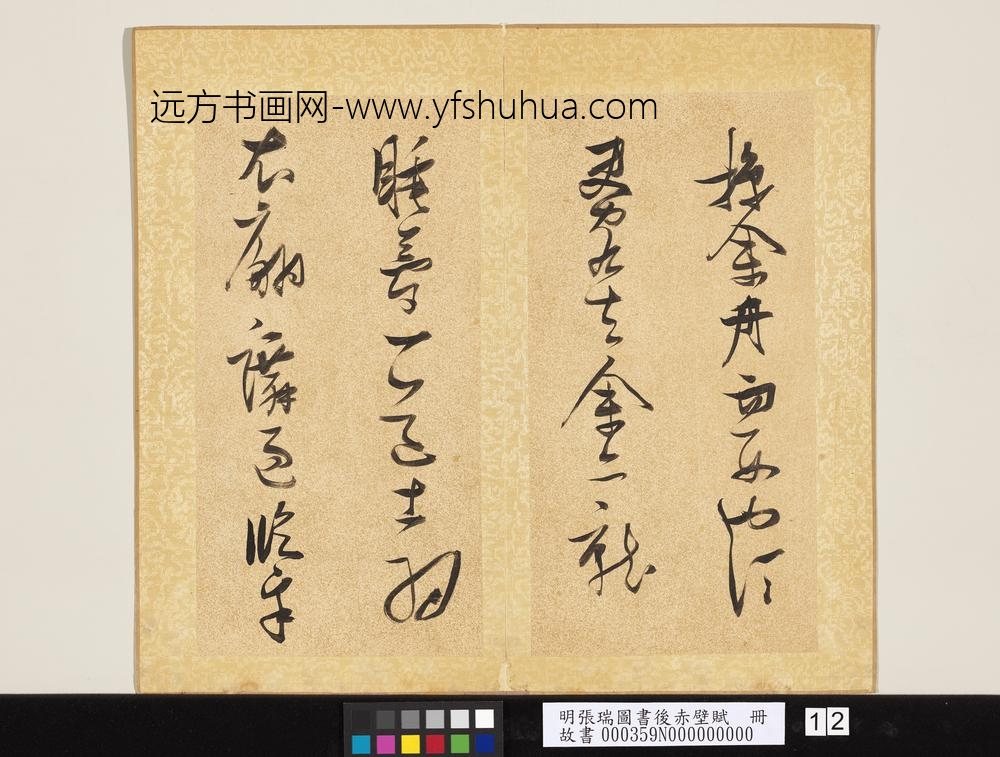 远方书画网-www.yfshuhua.com
掠余舟而西也須
臾客去余亦就
睡夢一道士羽
衣翩躚過臨皋
明張瑞圖書後赤壁賦　冊
故書 000359N000000000
12